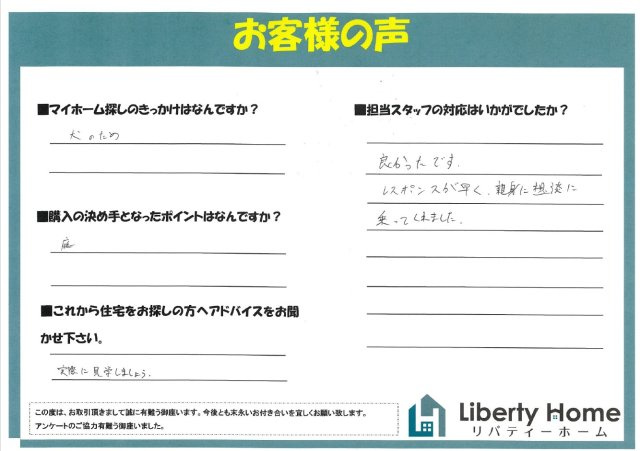 お客様の声
■マイホーム探しのきっかけはなんですか？
犬のため
■購入の決め手となったポイントはなんですか？
庭
■これから住宅をお探しの方へアドバイスをお聞
かせ下さい。
実際に見学しましょう。
■担当スタッフの対応はいかがでしたか？
良かったです。
レスポンスが早く、親身に相談に
乗ってくれました。
この度は、お取引頂きまして誠に有難う御座います。今後とも末永いお付き合いを宜しくお願い致します。
アンケートのご協力有難う御座いました。
Liberty Home
リバティーホーム